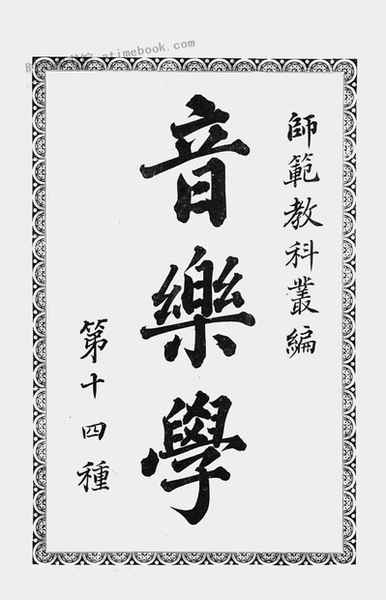 師範教科叢編
音樂學
第十四種
atimebook.com